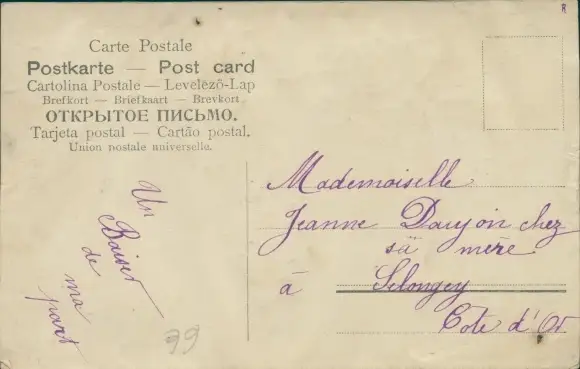 Carte Postale
Postkarte — Post card
Cartolina Postale — Levelező-Lap
Brefkort — Briefkaart — Brevkort
ОТКРЫТОЕ ПИСЬМО.
Tarjeta postal — Cartão postal.
Union postale universelle.
Un
Baiser
de
ma
part
99
Mademoiselle
Jeanne Daujon chez
sa mère
à Selongey
Cote d'Or